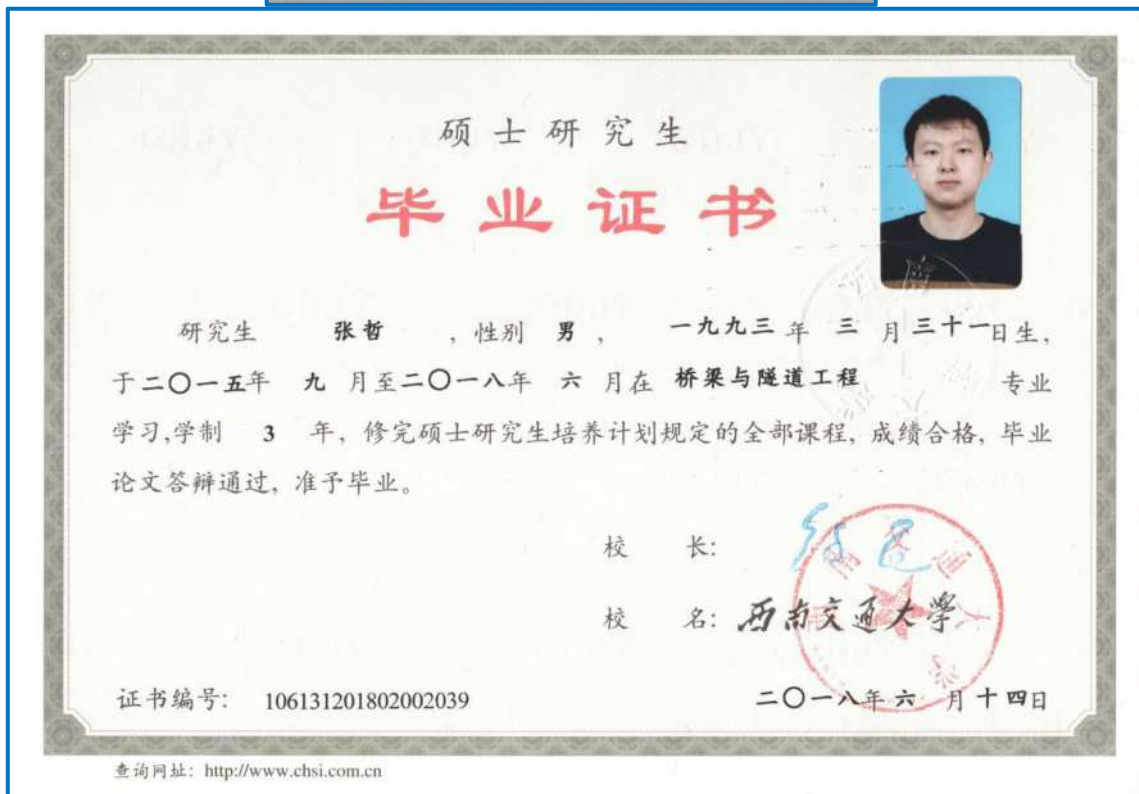 硕士研究生
毕业证书
研究生 张哲 ，性别 男 ， 一九九三 年 三 月 三十一日生，
于二〇一五年 九 月至二〇一八年 六 月在 桥梁与隧道工程 专业
学习,学制 3 年，修完硕士研究生培养计划规定的全部课程，成绩合格，毕业
论文答辩通过，准予毕业。
校 长：
校 名：西南交通大學
证书编号： 106131201802002039
二〇一八年 六 月 十四日
查询网址：http://www.chsi.com.cn